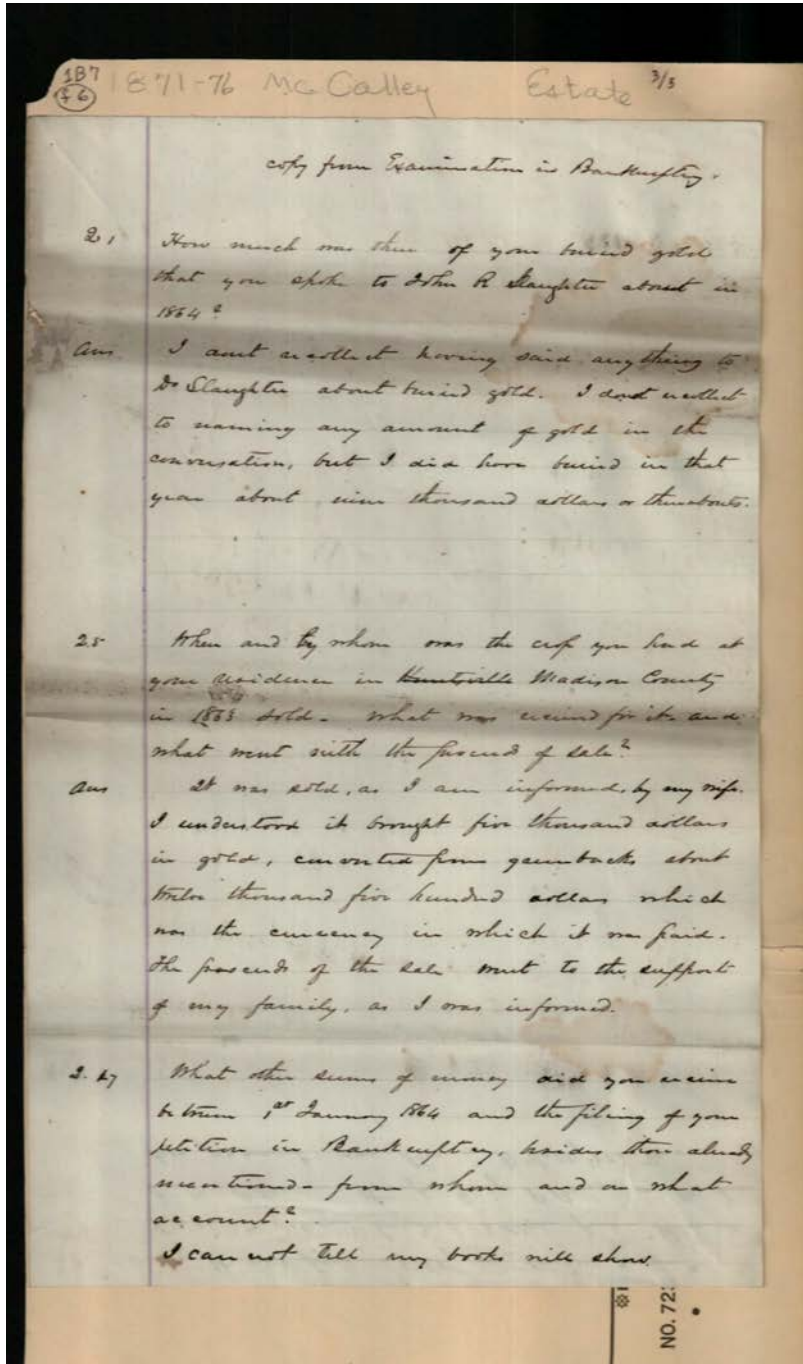 1B7
f 6
1871-76 McCalley Estate 3/3
copy from Examination in Bankruptcy.
2, How much was there of your buried gold
that you spoke to John R Slaughter about in
1864?
Ans I dont recollect having said anything to
Dr Slaughter about buried gold. I do not recollect
to naming any amount of gold in the
conversation, but I did have buried in that
year about nine thousand dollars or thereabouts.
25 When and by whom was the crop you had at
your residence in Huntsville Madison County
in 1863 sold - what was received for it and
what went with the proceeds of sale?
Ans It was sold, as I am informed, by my wife.
I understood it brought five thousand dollars
in gold, converted from greenbacks about
twelve thousand five hundred dollars which
was the currency in which it was paid.
The proceeds of the sale went to the support
of my family, as I was informed.
2. 27 What other sums of money did you receive
between 1st January 1864 and the filing of your
petition in Bankruptcy, besides those already
mentioned - from whom and on what
account?
I can not tell my books will show.
NO. 723